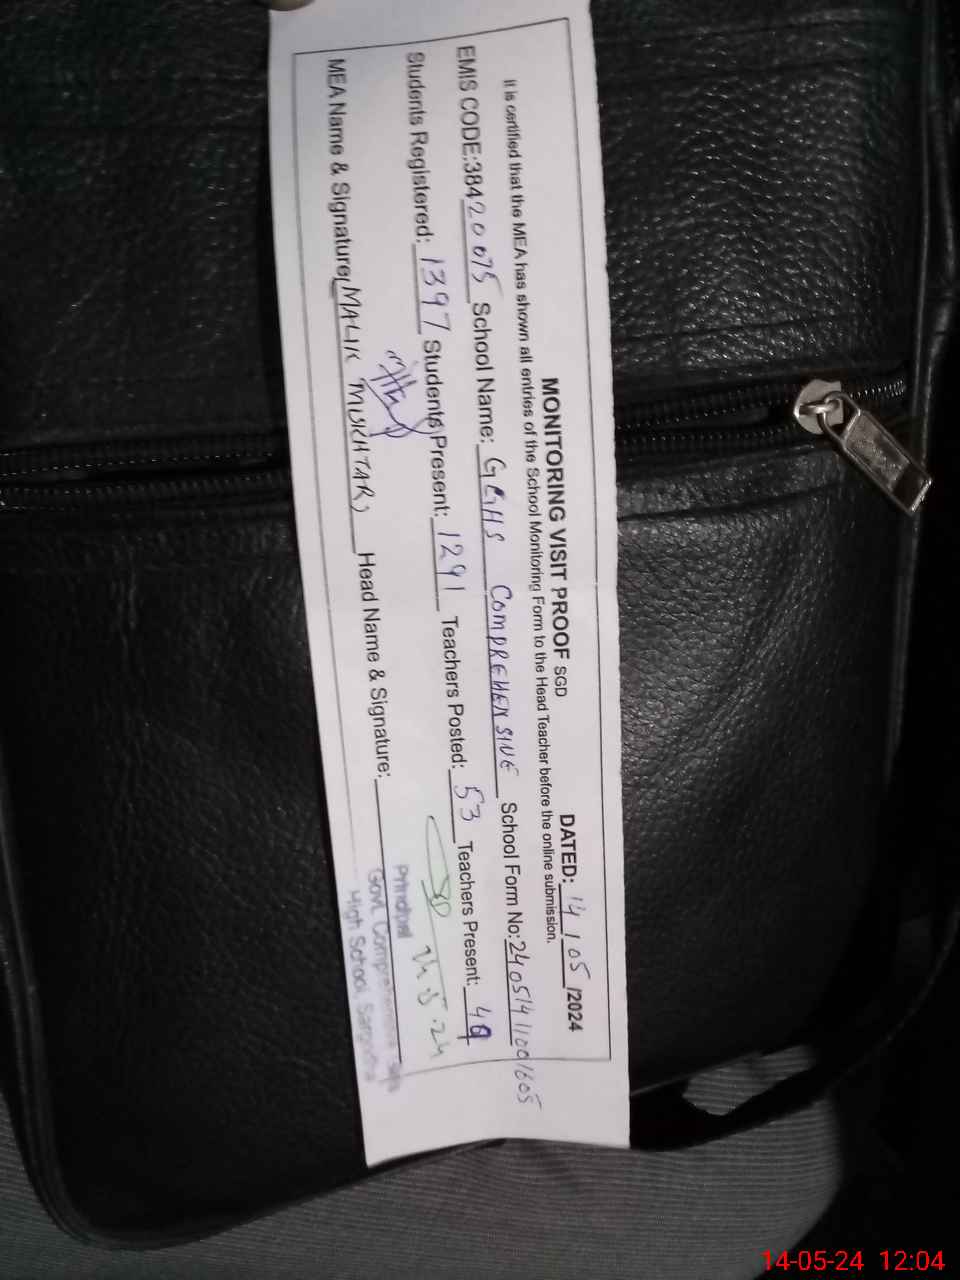 MONITORING VISIT PROOF SGD DATED: 14 / 05 /2024
It is certified that the MEA has shown all entries of the School Monitoring Form to the Head Teacher before the online submission.
EMIS CODE:38420075 School Name: GGHS COMPREHENSINE School Form No:24051411001605
Students Registered: 1397 Students Present: 1291 Teachers Posted: 53 Teachers Present: 49
MEA Name & Signature(MALIK MUKHTAR) Head Name & Signature:
Principal
Govt. Comprehensive
High School, Sargodha
14-05-24 12:04